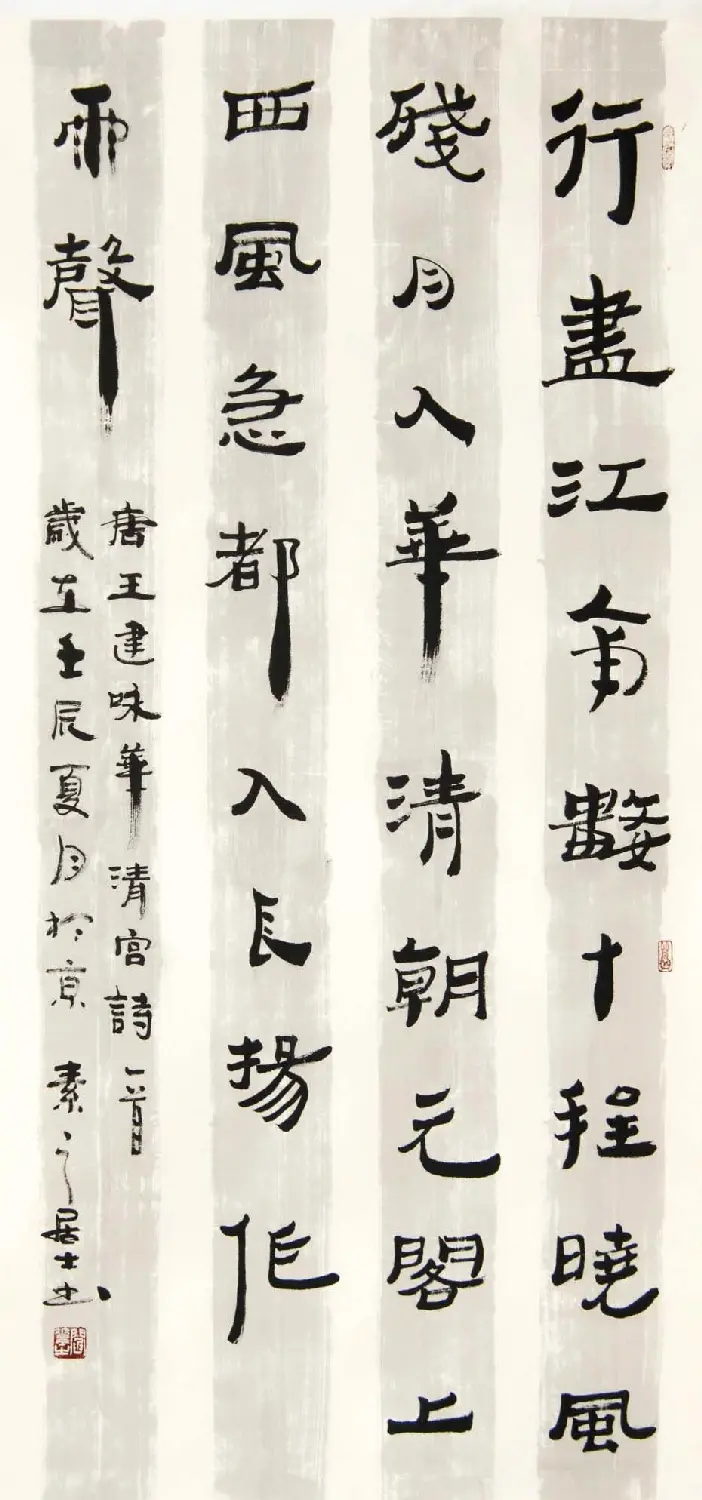 行盡江南數十程曉風
殘月入華清朝元閣上
西風急都入長揚作
雨聲
唐王建咏華清宮詩一首
歲在壬辰夏月於京 素之居士书